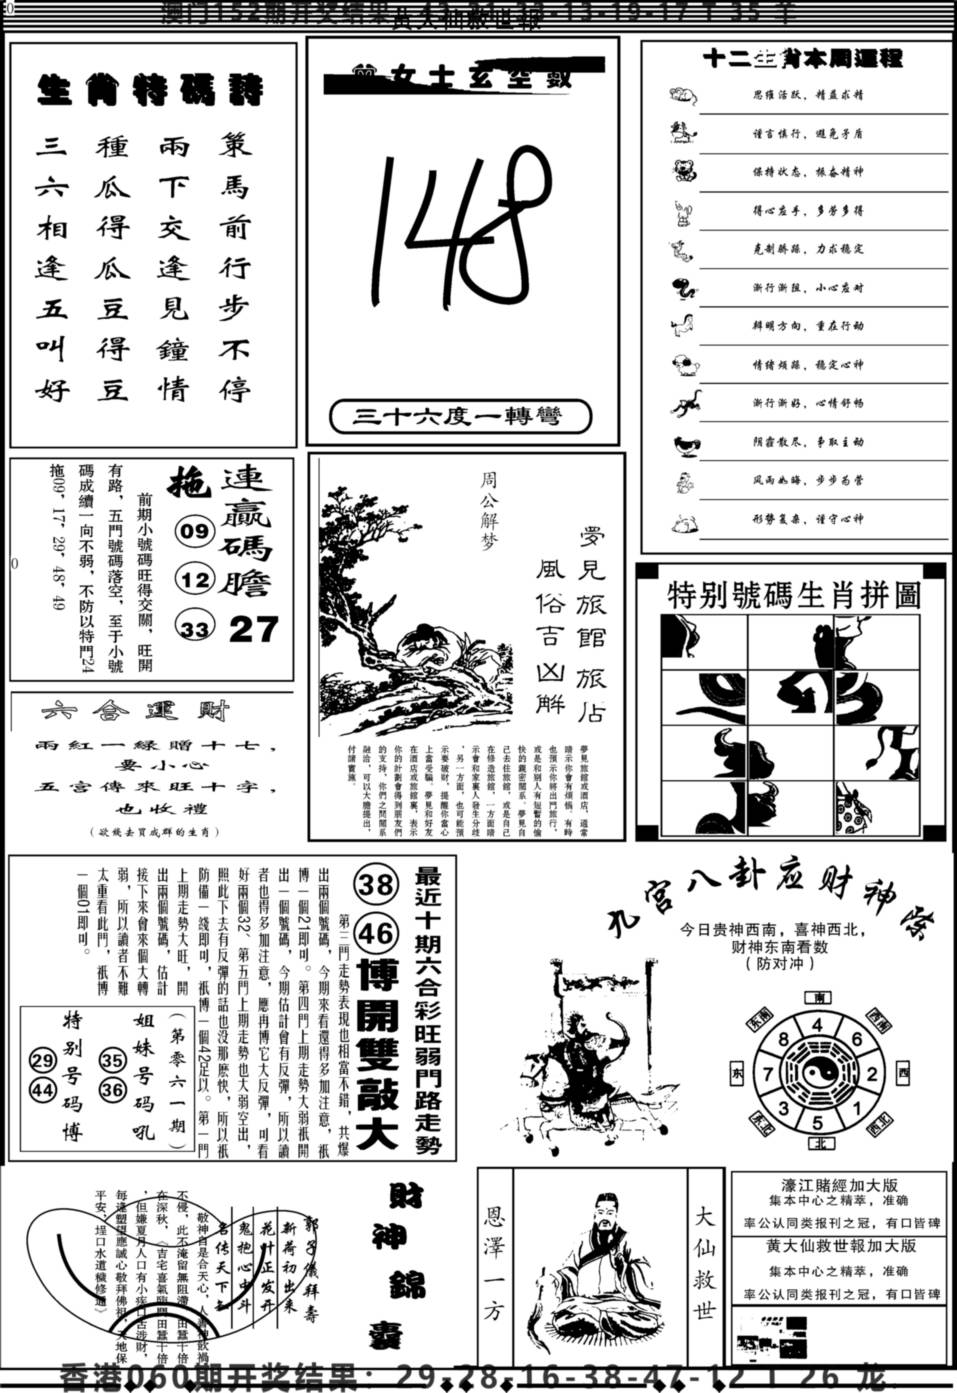 澳门152期开奖结果
13-19-17 T 35 羊
黃大仙救世報
生肖特碼詩
策馬前行步不停
兩下交逢見鐘情
種瓜得瓜豆得豆
三六相逢五叫好
曾女士玄空數
148
三十六度一轉彎
十二生肖本周運程
思维活跃，精益求精
谨言慎行，避免矛盾
保持状态，振奋精神
得心应手，多劳多得
克制骄躁，力求稳定
渐行渐阻，小心应对
辩明方向，重在行动
情绪烦躁，稳定心神
渐行渐好，心情舒畅
阴霾散尽，争取主动
风雨如晦，步步为营
形势复杂，谨守心神
連贏碼膽
27
拖
09
12
33
前期小號碼旺得交關，旺開
有路，五門號碼落空，至于小號
碼成績一向不弱，不防以特門24
拖09，17，29，48，49
0
0
六合運財
兩紅一綠贈十七，
要小心
五宮傳來旺十字，
也收禮
（欲錢去買成群的生肖）
周公解梦
夢見旅館 旅店
風俗吉凶解
夢見旅館或酒店，通常
暗示你會有煩惱，有時
也預示你將出門旅行，
或是和別人有短暫的愉
快的親密關系。夢見自
己去住旅館，或是自己
在修造旅館，一方面暗
示會和家裏人發生分歧
，另一方面，也可能預
示要破財，提醒你當心
上當受騙。夢見和好友
在酒店或旅館裏，表示
你的計劃會得到朋友們
的支持，你們之間關系
融洽，可以大膽提出，
付諸實施。
特别號碼生肖拼圖
最近十期六合彩旺弱門路走勢
38
46
博開雙敲大
第三門走勢表現也相當不錯，共爆
出兩個號碼，今期來看還得多加注意，祇
博一個21即可。第四門上期走勢大弱祇開
出一個號碼，今期估計會有反彈，所以讀
者也得多加注意，應再博它大反彈，可看
好兩個32、第五門上期走勢也大弱空出，
照此下去有反彈的話也没那麽快，所以祇
防備一綫即可，祇博一個42足以。第一門
上期走勢大旺，開
出兩個號碼，估計
接下來會來個大轉
弱，所以讀者不難
太重看此門，祇博
一個01即可。
（第零六一期）
姐妹号码吼
35
36
特别号码博
29
44
九宫八卦应财神除
今日贵神西南，喜神西北，
财神东南看数
（防对冲）
南
西南
西
西北
北
东北
东
东南
4
6
2
1
5
3
7
8
財神錦囊
郭子儀拜壽
新荷初出来
花叶正发开
鬼抱心中斗
名传天下
敬神自是合天心，人善神欽禍
不侵，此不淹留無阻滯，田蠶十倍
在深秋，《吉宅喜氣臨門田蠶十倍
，但嫌夏月人口有小疾口舌涉財，
每逢塑望應誠心敬拜佛祖，天地保
平安，埕口水道穢修通》
恩澤一方
大仙救世
濠江賭經加大版
集本中心之精萃，准确
率公认同类报刊之冠，有口皆碑
黄大仙救世報加大版
集本中心之精萃，准确
率公认同类报刊之冠，有口皆碑
香港060期开奖结果：29-28-16-38-47-12 T 26 龙